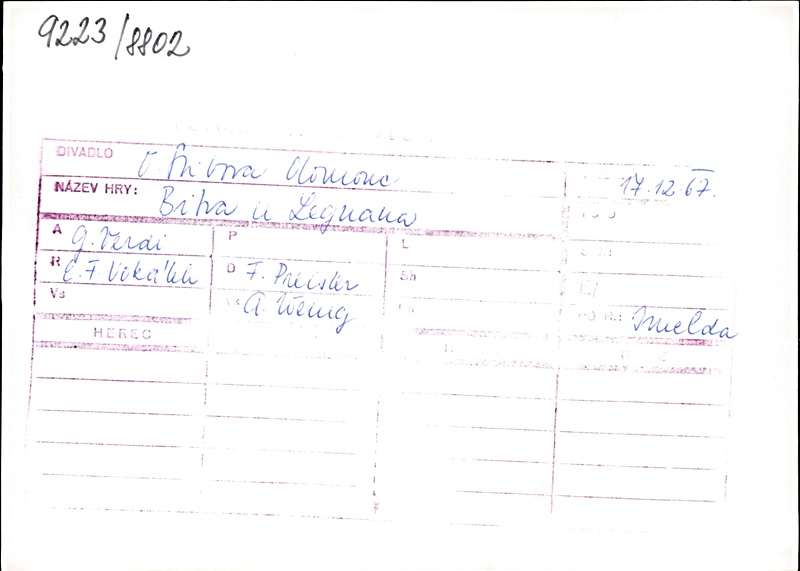 9223/8802
DIVADLO O. Stibora Olomouc 17.12.67.
NÁZEV HRY: Bitva u Legnana
A G. Verdi P L
R E. F. Vokálek D F. Preisler Sh
Vs A. Wenig Imelda
HEREC